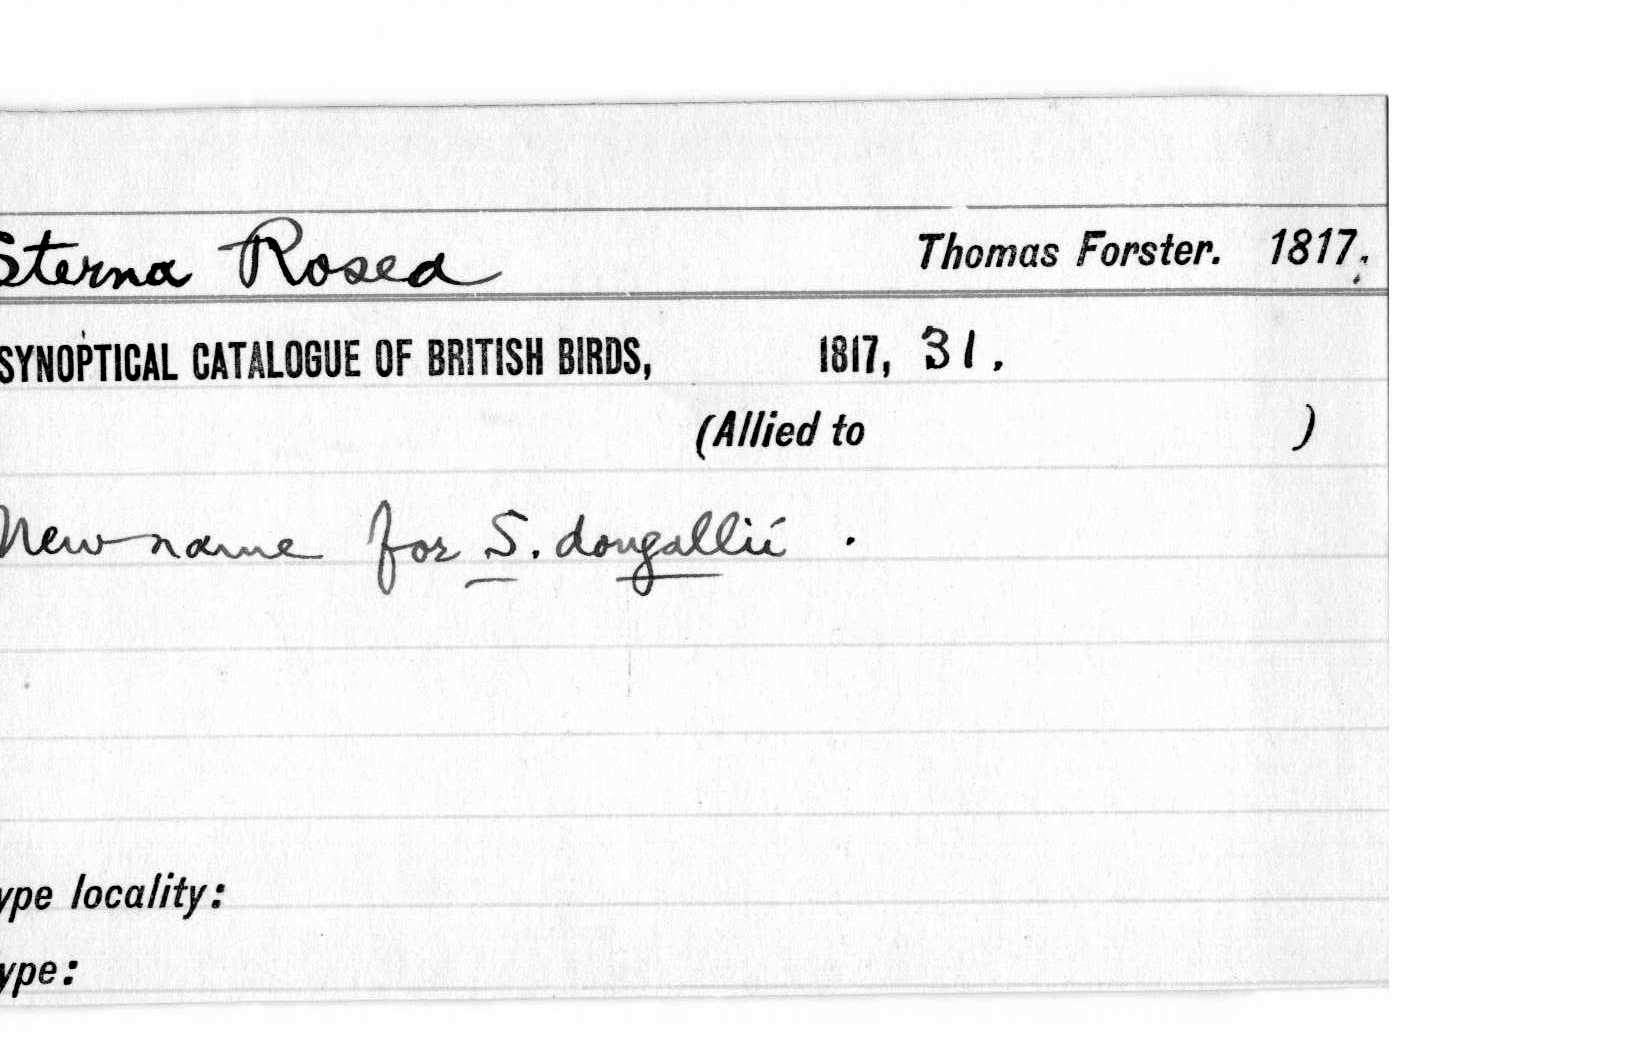 Sterna Rosea Thomas Forster. 1817.
SYNOPTICAL CATALOGUE OF BRITISH BIRDS, 1817, 31.
(Allied to )
New name for S. dougallii.
ype locality:
ype: